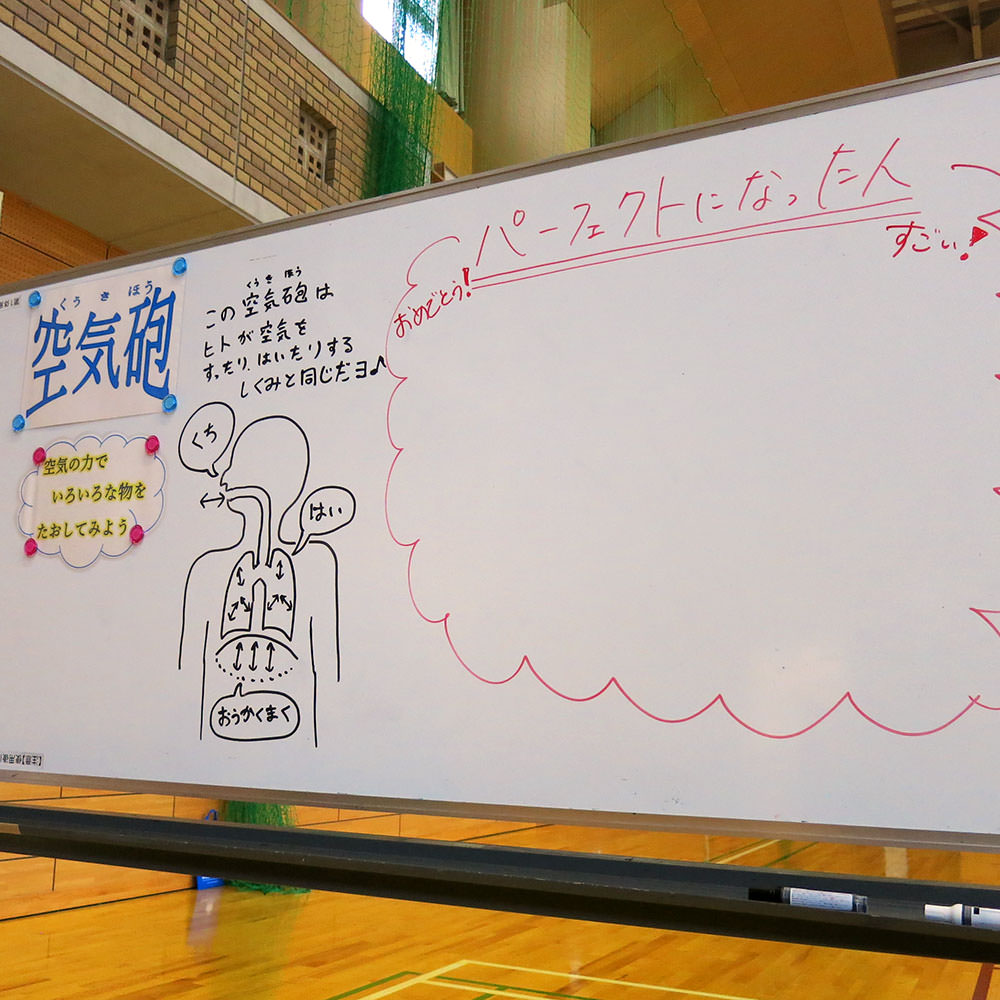 くうきほう
空気砲
空気の力で
いろいろな物を
たおしてみよう
くうきほう
この空気砲は
ヒトが空気を
すったり、はいたりする
しくみと同じだヨ♪
くち
はい
おうかくまく
パーフェクトになった人
おめでとう!
すごい!